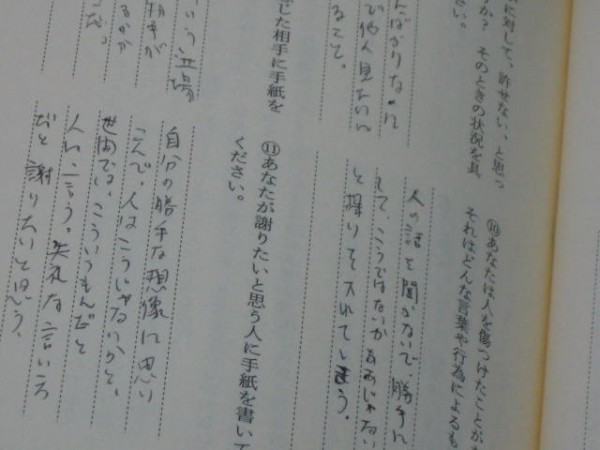 に対して、許せない、と思っ
か？ そのときの状況を具
さい。
んばかりなのに
で他人見たいに
ること。
じた相手に手紙を
いう立場
⑩あなたは人を傷つけたことが
それはどんな言葉や行為によるも
人の話を聞かないで勝手に
して、こうではないかああじゃない
と探りを入れてしまう。
⑪あなたが謝りたいと思う人に手紙を書いて
ください。
自分の勝手な想像に思い
こんで、人はこうじゃないかと、
世間では、こういうもんだと
人に言う。失礼な言いころ
だと謝りたいと思う。